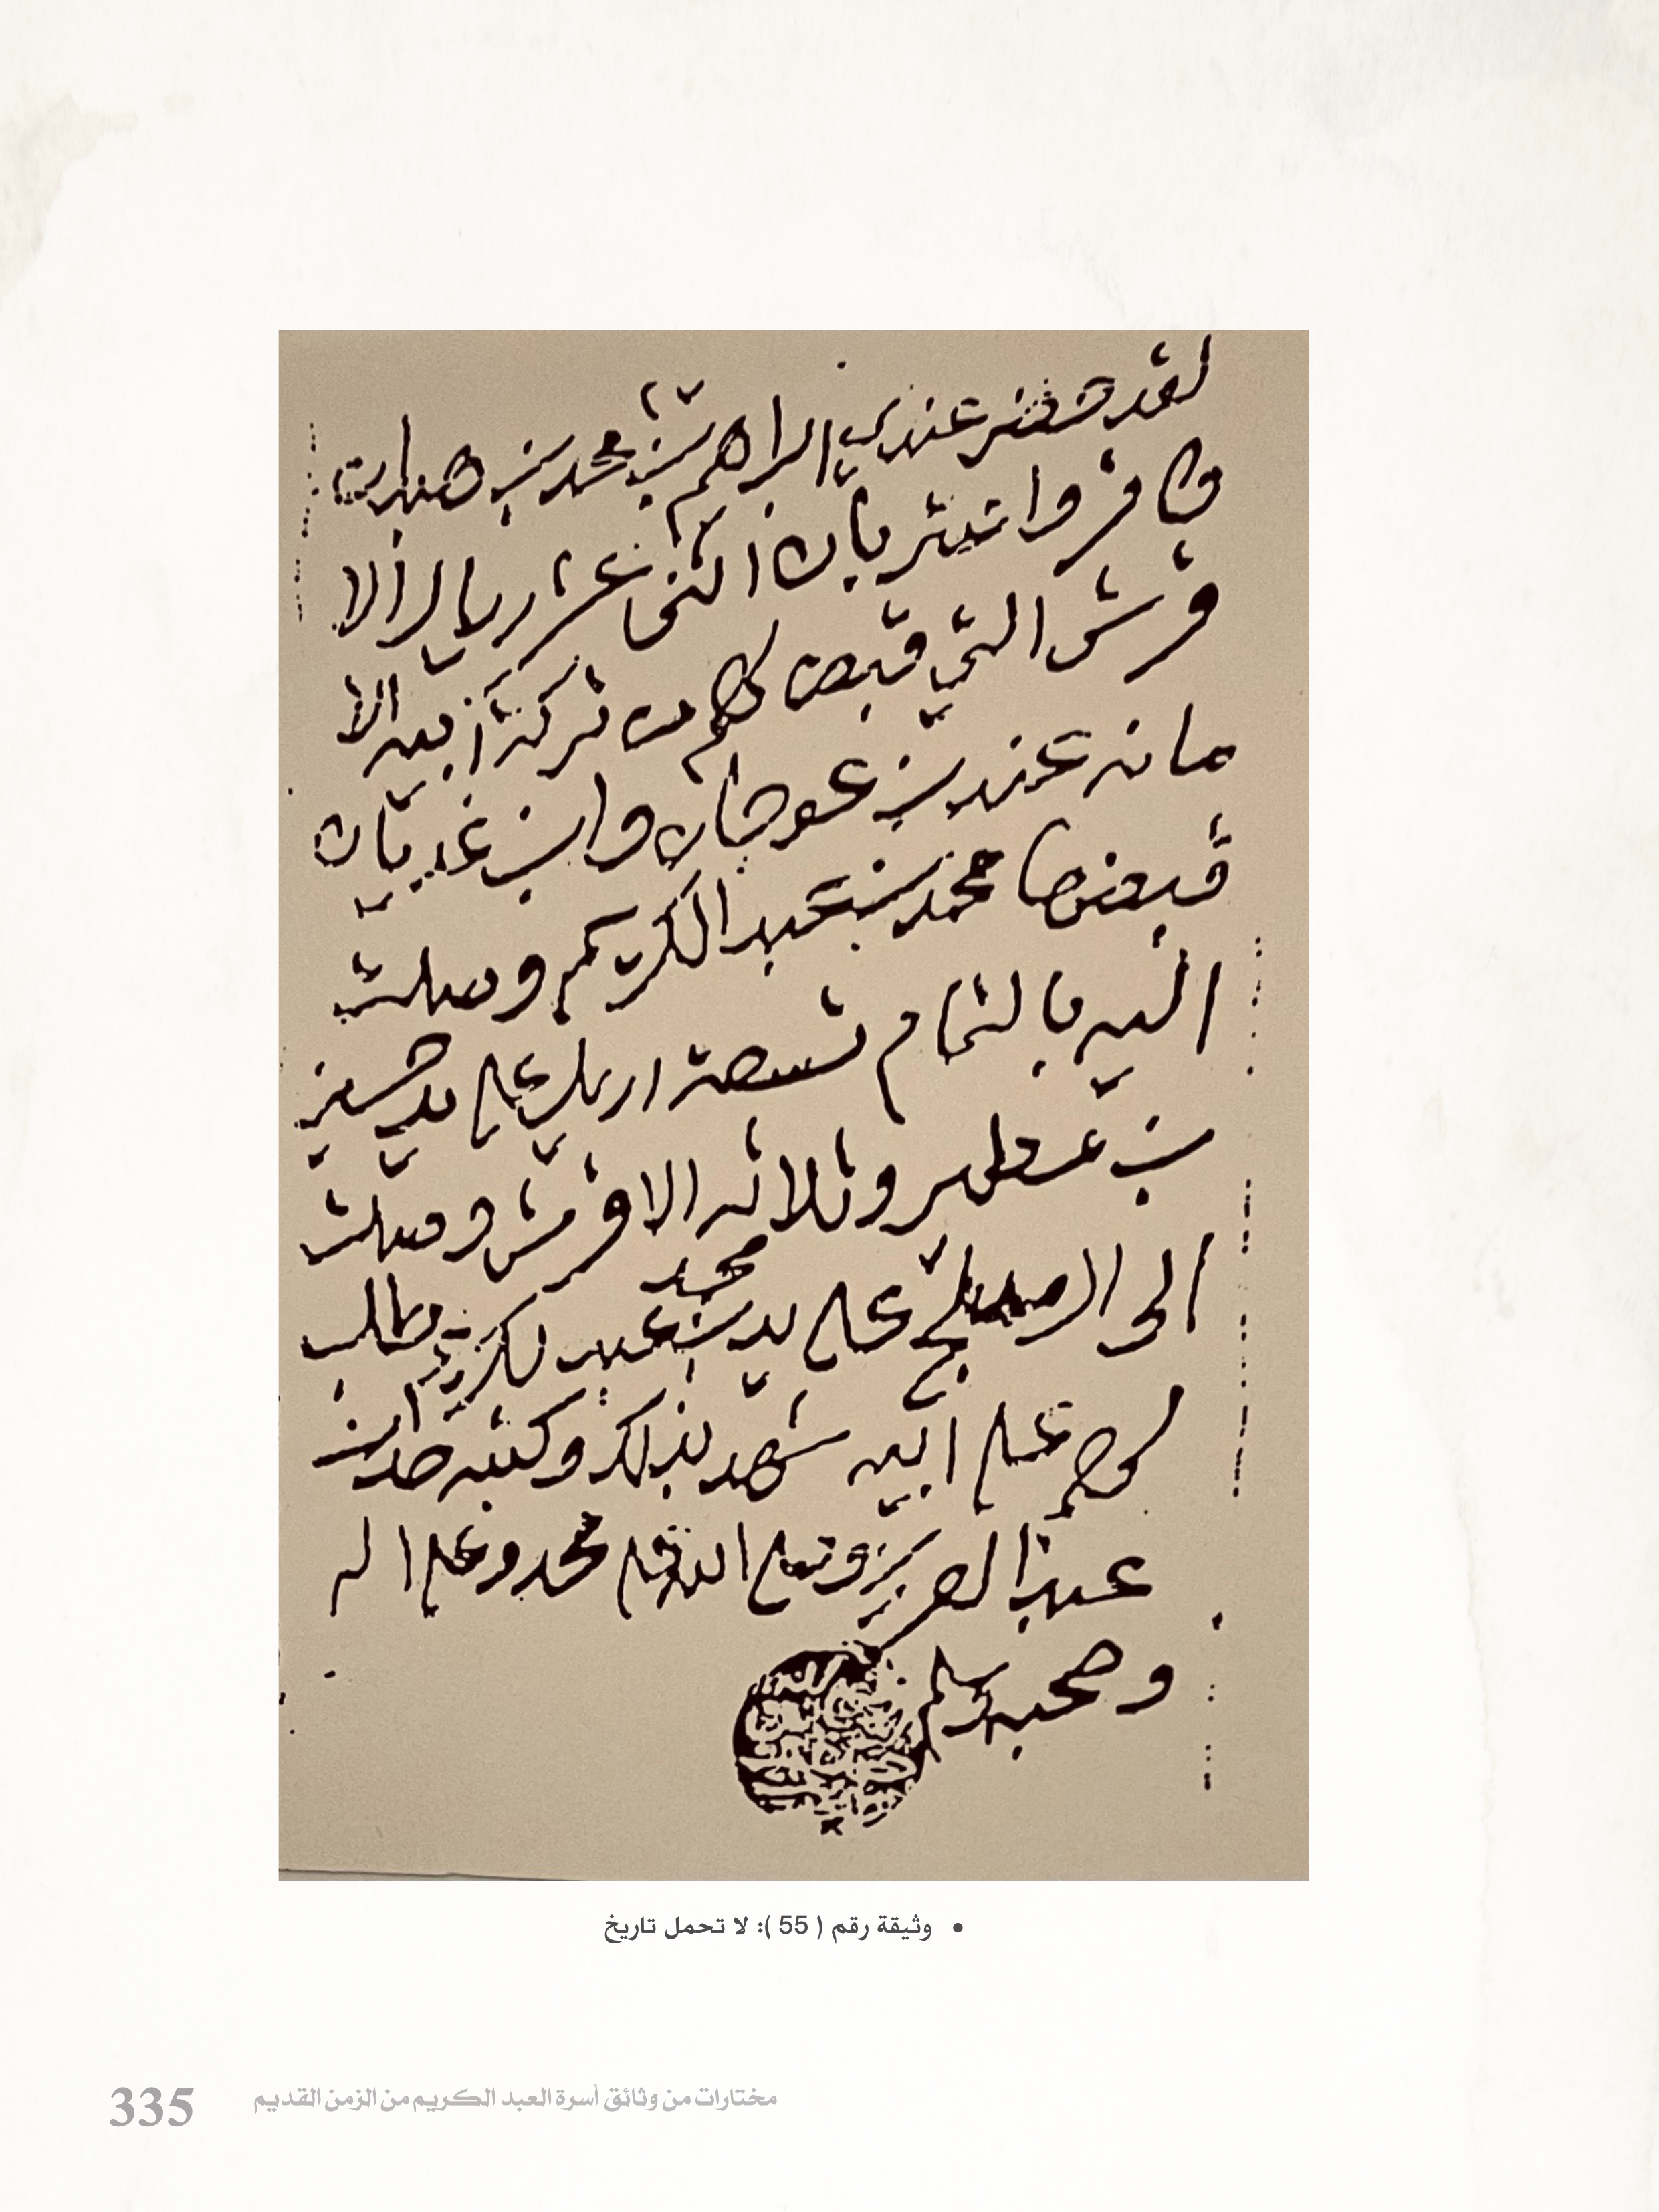 لقد حضر عندي ابراهيم بن محمد بن
واقر واعترف بان اثني عشر ريال الا
قرش التي قبض لهم من تركة ابيه الا
مانه عند بن عوجان وابن غديان
قبضها محمد بن عبد الكريم وصلت
اليه بالتمام تسعة اريل على يد
بن وثلاثه الا قرش وصلت
الى على يد محمد بن عبد لكريم
على ابيه شهد بذلك وكتبه حمد ابن
عبد العزيز وصلى الله على محمد وعلى اله
وصحبه وسلم
• وثيقة رقم ( 55 ): لا تحمل تاريخ
مختارات من وثائق أسرة العبد الكريم من الزمن القديم
335